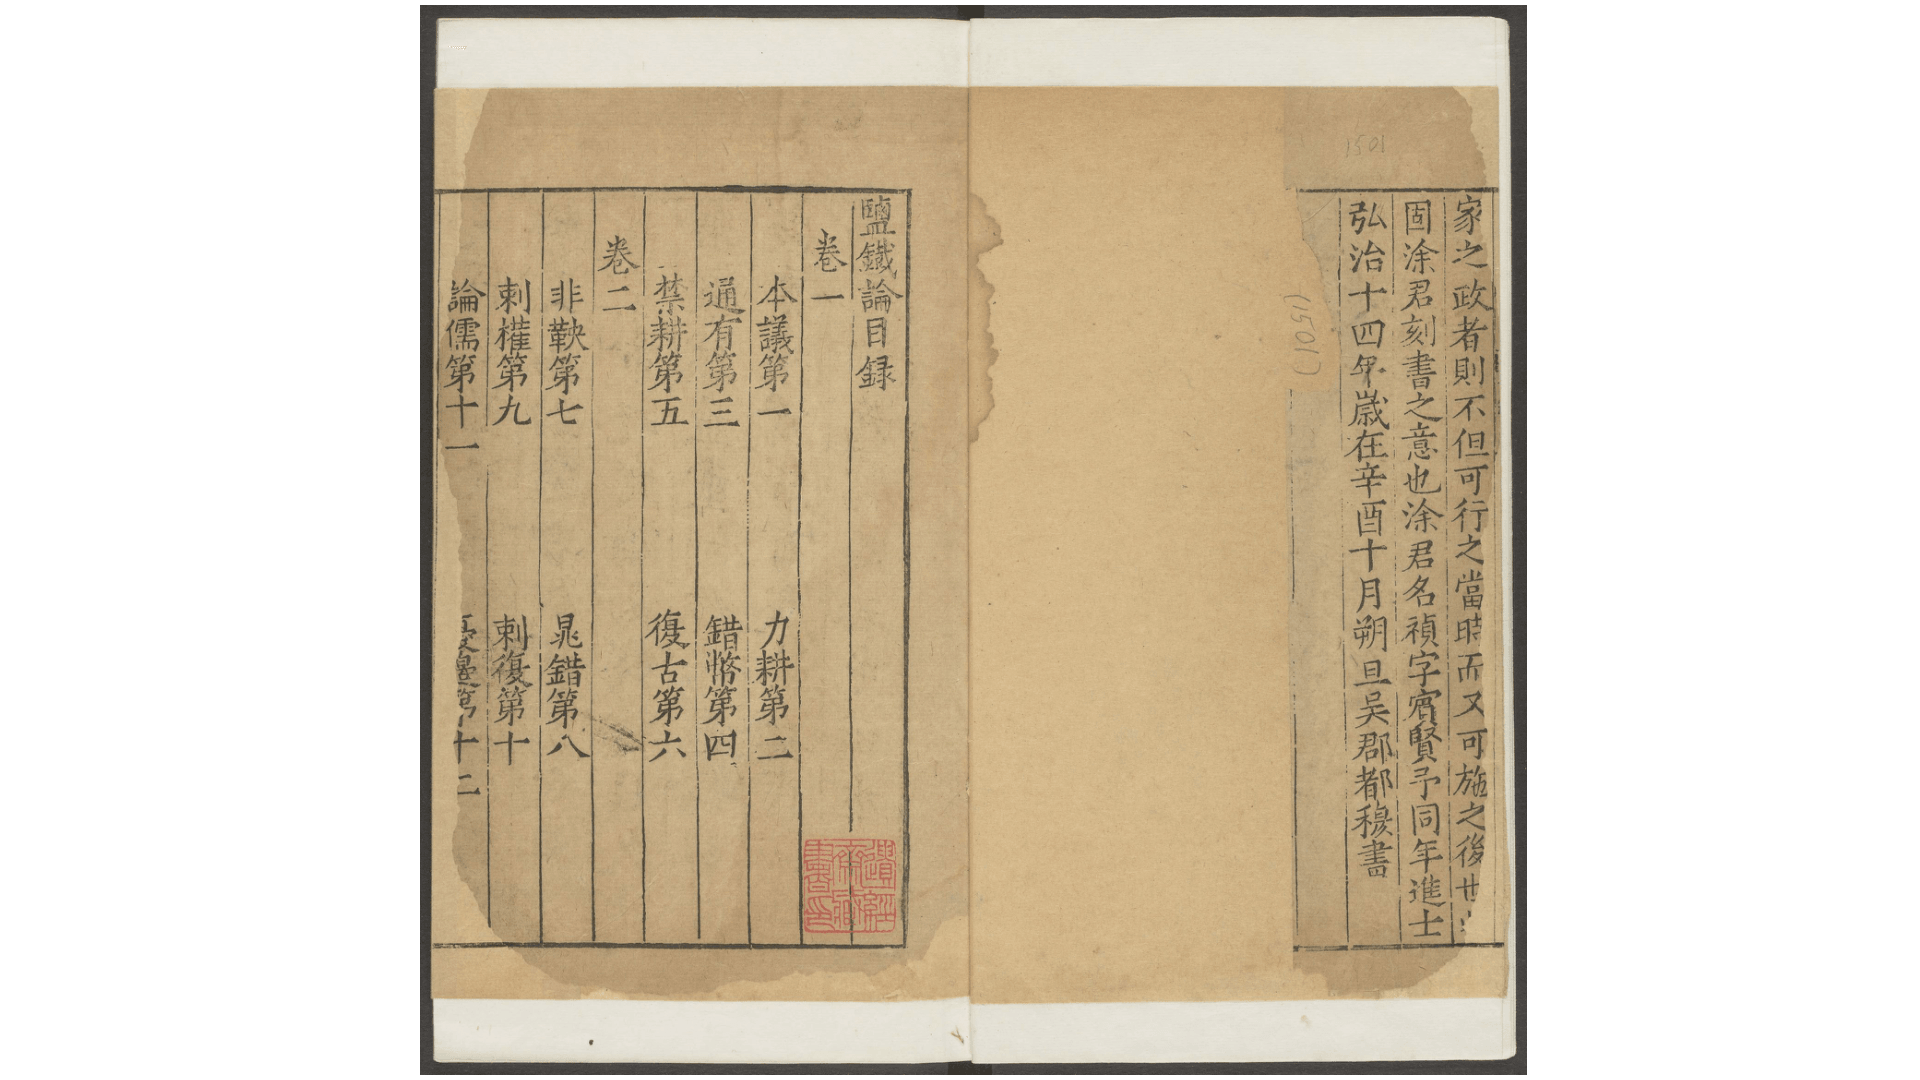 1501
家之政者則不但可行之當時而又可施之後世
固涂君刻書之意也涂君名禎字賓賢予同年進士
弘治十四年歲在辛酉十月朔旦吳郡都穆書
(1501)
鹽鐵論目録
卷一
本議第一 力耕第二
通有第三 錯幣第四
禁耕第五 復古第六
卷二
非鞅第七 晁錯第八
刺權第九 刺復第十
論儒第十一 憂邊第十二
遺經
齋藏
書印